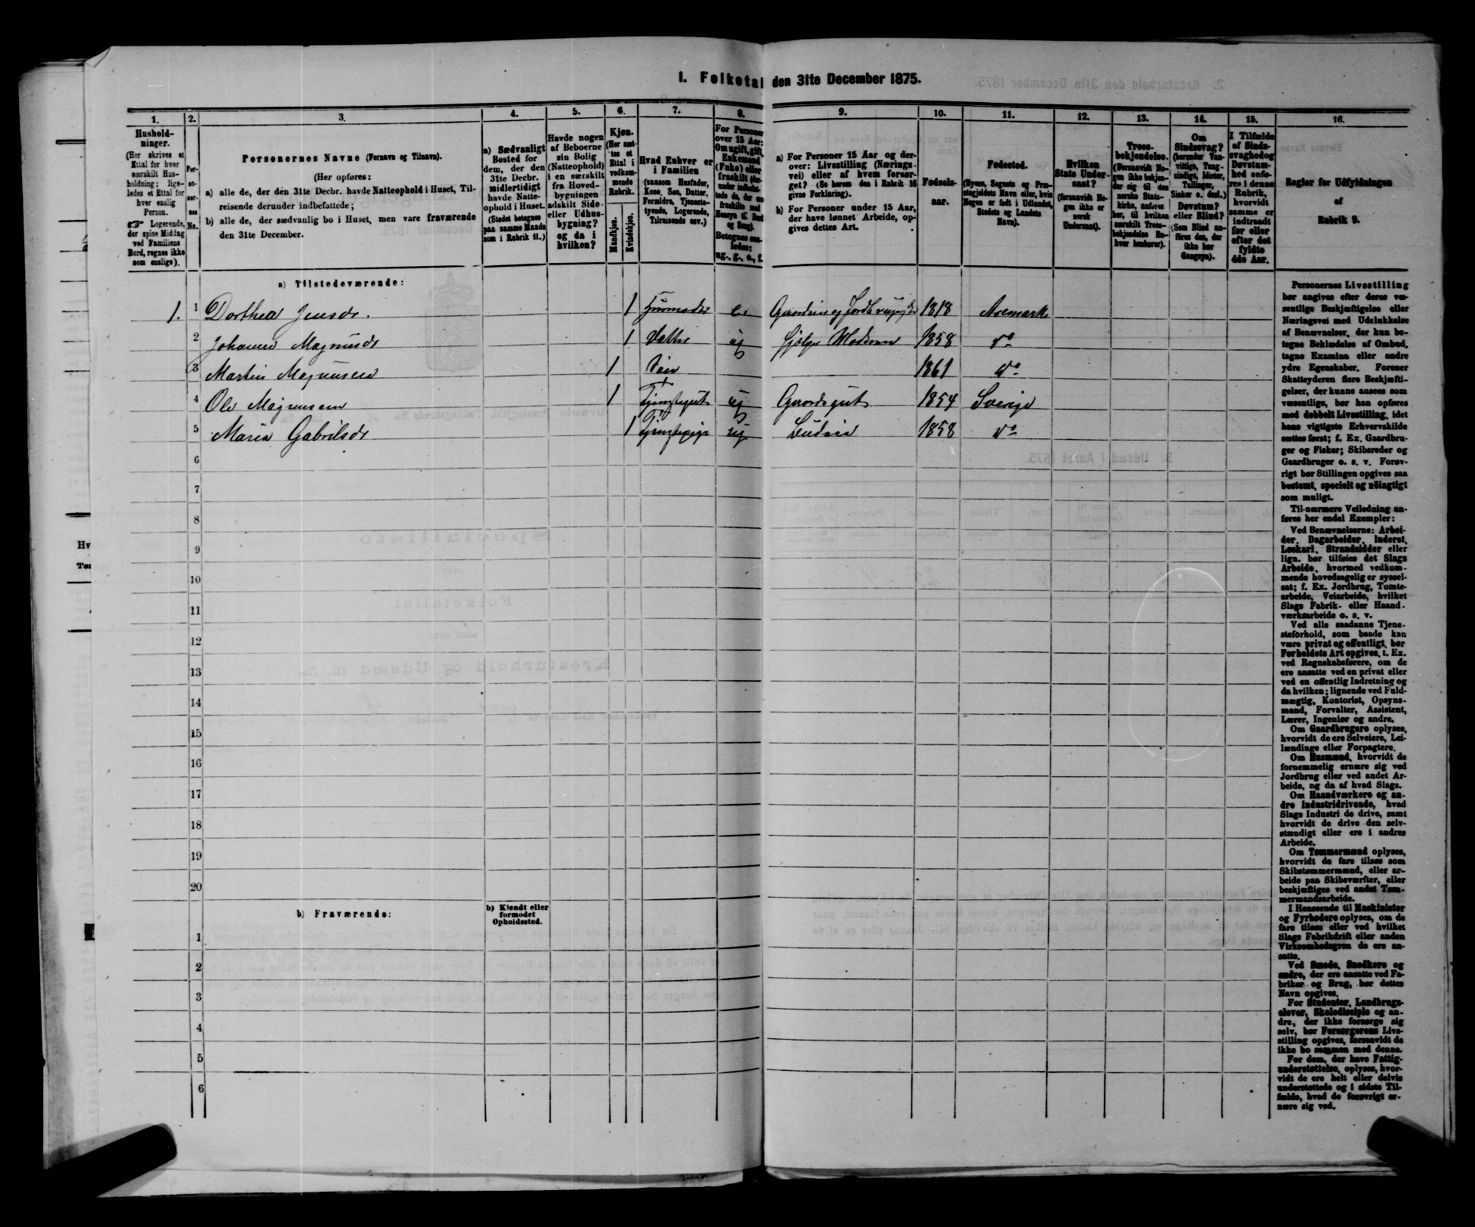 1. Folketal den 31te December 1875.
1. 2. 3. 4. 5. 6. 7. 8. 9. 10. 11. 12. 13. 14. 15. 16.
Hushold-
ninger.
(Her skrives et
Ettal for hver
særskilt Hus-
holdning; lige-
ledes et Ettal for
hver enslig
Person.
Logerende,
der spise Middag
ved Familiens
Bord, regnes ikke
som enslige).
Per-
so-
ner-
nes
No.
Personernes Navne (Fornavn og Tilnavn).
(Her opføres:
a) alle de, der den 31te Decbr. havde Natteophold i Huset, Til-
reisende derunder indbefattede;
b) alle de, der sædvanlig bo i Huset, men vare fraværende
den 31te December.
a) Sædvanligt
Bosted for
dem, der den
31te Decbr.
midlertidigt
havde Natte-
ophold i Huset.
(Stedet betegnes
paa samme Maade
som i Rubrik 11.)
Havde nogen
af Beboerne
sin Bolig
(Natteophold)
i en særskilt
fra Hoved-
bygningen
adskilt Side-
eller Udhus-
bygning?
og da i
hvilken?
Kjøn.
(Her sæt-
tes et
Ettal i
vedkom-
mende
Rubrik.
Mandkjøn.
Kvindekjøn.
Hvad Enhver er
i Familien
(saasom Husfader,
Kone, Søn, Datter,
Forældre, Tjeneste-
tyende, Logerende,
Tilreisende osv.)
For Personer
over 15 Aar:
Om ugift, gift,
Enkemand
(Enke) eller
fraskilt
ug., g., e., f.
a) For Personer 15 Aar og der-
over: Livsstilling (Nærings-
vei) eller af hvem forsør-
get? (Se herom den i Rubrik 16
givne Forklaring).
b) For Personer under 15 Aar,
der have lønnet Arbeide, op-
gives dettes Art.
Fødsels-
aar.
Fødested.
(Byens, Sognets og Præ-
stegjeldets Navn eller, hvis
Nogen er født i Udlandet,
Stedets og Landets
Navn).
Hvilken
Stats Under-
saat?
(forsaavidt No-
gen ikke er
norsk
Undersaat).
Troes-
bekjendelse.
(Forsaavidt No-
gen ikke bekjen-
der sig til den
norske Stats-
kirke, anføres
her, til hvilken
særskilt Troes-
bekjendelse En-
hver henhører).
Om
Sindssvag?
(herunder Van-
vittige, Tung-
sindige, Idioter,
Tullinger,
Sinker o. desl.)
Døvstum?
eller Blind?
(Som Blind an-
føres den, der
ikke har
Gangsyn).
I Tilfælde
af Sinds-
svaghed og
Døvstum-
hed anfø-
res i denne
Rubrik,
hvorvidt
samme er
indtraadt
før eller
efter det
fyldte
4de Aar.
Regler for Udfyldningen
af
Rubrik 9.
a) Tilstedeværende:
1. 1 Dorthea Jensdr. 1 Husmoder e. 1818 Aremark
2 Johanne Magnusdr 1 Datter ug Hjælper Moderen 1858 do
3 Martin Magnussen 1 Søn 1861 do
4 Ole Magnussen 1 Tjenstegut ug Gaardsgut 1854 Sverige
5 Maria Gabrilsdr 1 Tjenstepige ug Budeie 1858 do
6
7
8
9
10
11
12
13
14
15
16
17
18
19
20
b) Fraværende:
b) Kjendt eller
formodet
Opholdssted.
1
2
3
4
5
6
Personernes Livsstilling
bør angives efter deres væ-
sentlige Beskjæftigelse eller
Næringsvei med Udelukkelse
af Benævnelser, der kun be-
tegne Beklædelse af Ombud,
tagne Examina eller andre
ydre Egenskaber. Forener
Skatteyderen flere Beskjæfti-
gelser, der kunne ansees som
væsentlige, bør han opføres
med dobbelt Livsstilling, idet
hans vigtigste Erhvervskilde
sættes først; f. Ex. Gaardbru-
ger og Fisker; Skibsreder og
Gaardbruger o. s. v. Forøv-
rigt bør Stillingen opgives saa
bestemt, specielt og nøiagtigt
som muligt.
Til nærmere Veiledning an-
føres her endel Exempler:
Ved Benævnelserne: Arbei-
der, Dagarbeider, Inderst,
Løskarl, Strandsidder eller
lign. bør tilføies det Slags
Arbeide, hvormed vedkom-
mende hovedsagelig er syssel-
sat; f. Ex. Jordbrug, Tomte-
arbeide, Veiarbeide, hvilket
Slags Fabrik- eller Haand-
værksarbeide o. s. v.
Ved alle saadanne Tjene-
steforhold, som baade kan
være privat og offentligt, bør
Forholdets Art opgives, t. Ex.
ved Regnskabsførere, om de
ere ansatte ved en privat eller
ved en offentlig Indretning og
da hvilken; lignende ved Fuld-
mægtig, Kontorist, Opsyns-
mand, Forvalter, Assistent,
Lærer, Ingeniør og andre.
Om Gaardbrugere oplyses,
hvorvidt de ere Selveiere, Lei-
lændinge eller Forpagtere.
Om Husmænd, hvorvidt de
fornemmelig ernære sig ved
Jordbrug eller ved andet Ar-
beide, og da af hvad Slags.
Om Haandværkere og an-
dre Industridrivende, hvad
Slags Industri de drive, samt
hvorvidt de drive den selv-
stændigt eller ere i andres
Arbeide.
Om Tømmermænd oplyses,
hvorvidt de fare tilsøs som
Skibstømmermænd, eller ar-
beide paa Skibsværfter, eller
beskjæftiges ved andet Tøm-
mermandsarbeide.
I Henseende til Maskinister
og Fyrbødere oplyses, om de
fare tilsøs eller ved hvilket
Slags Fabrikdrift eller anden
Virksomhedsgren de ere an-
satte.
Ved Smede, Snedkere og
andre, der ere ansatte ved Fa-
briker og Brug, bør dettes
Navn opgives.
For Studenter, Landbrugs-
elever, Skoledisciple og an-
dre, der ikke forsørge sig
selv, bør Forsørgerens Livs-
stilling opgives, forsaavidt de
ikke bo sammen med denne.
For dem, der have Fattig-
understøttelse, oplyses, hvor-
vidt de ere helt eller delvis
understøttede og i sidste Til-
fælde, hvad de forøvrigt er-
nære sig ved.